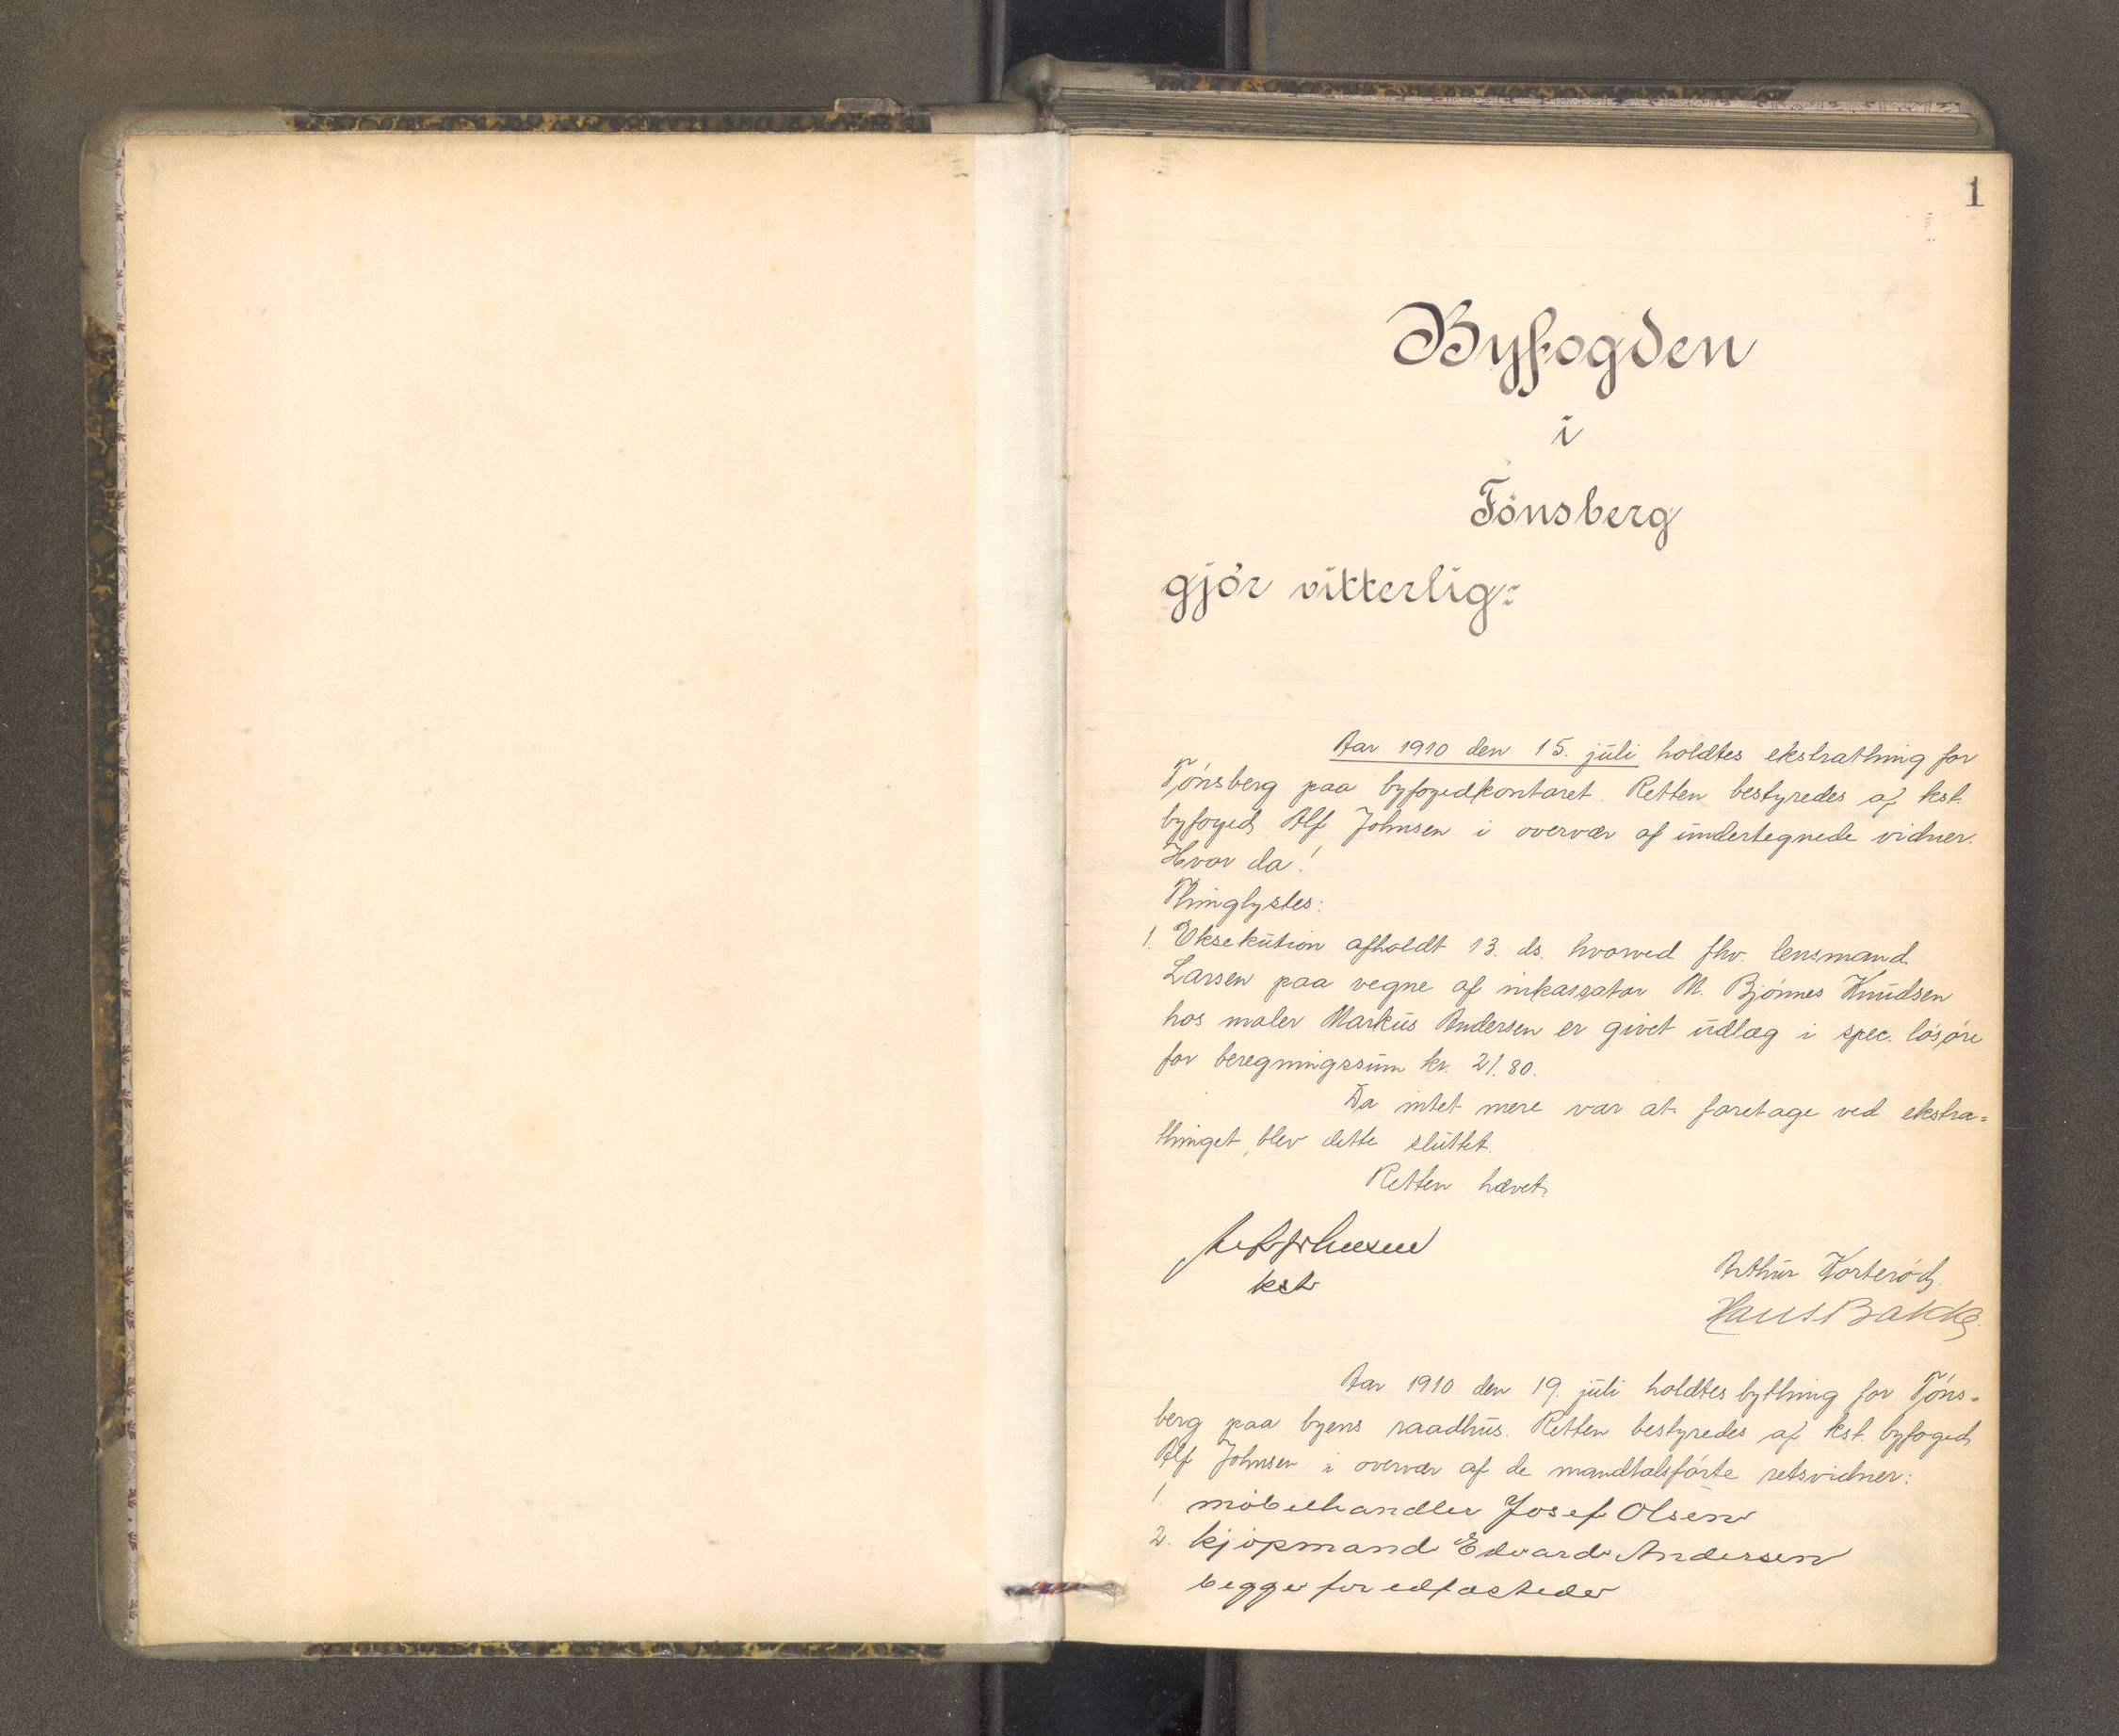 1
Byfogden
i
Tönsberg
gjör vitterlig:
Aar 1910 den 15. juli holdtes ekstrathing for
Tönsberg paa byfogedkontoret. Retten bestyredes af kst.
byfoged Alf Johnsen i overvær af undertegnede vidner.
Hvor da!
Thinglystes:
1. Eksekution afholdt 13. ds. hvorved fhv. lensmand
Larsen paa vegne af inkassator M. Bjönnes Knudsen
hos maler Markus Andersen er givet udlæg i spec. lösöre
for beregningssum kr. 21.80.
Da intet mere var at foretage ved ekstra=
thinget, blev dette sluttet.
Retten hævet.
Alf Johnsen
kst
Arthur Korteröd.
Hans Bakke.
Aar 1910 den 19. juli holdtes bything for Töns=
berg paa byens raadhus. Retten bestyredes af kst. byfoged
Alf Johnsen i overvær af de mandtalsförte retsvidner:
1. möbelhandler Josef Olsen
2. kjöpmand Edvard Andersen
begge foredfæstede